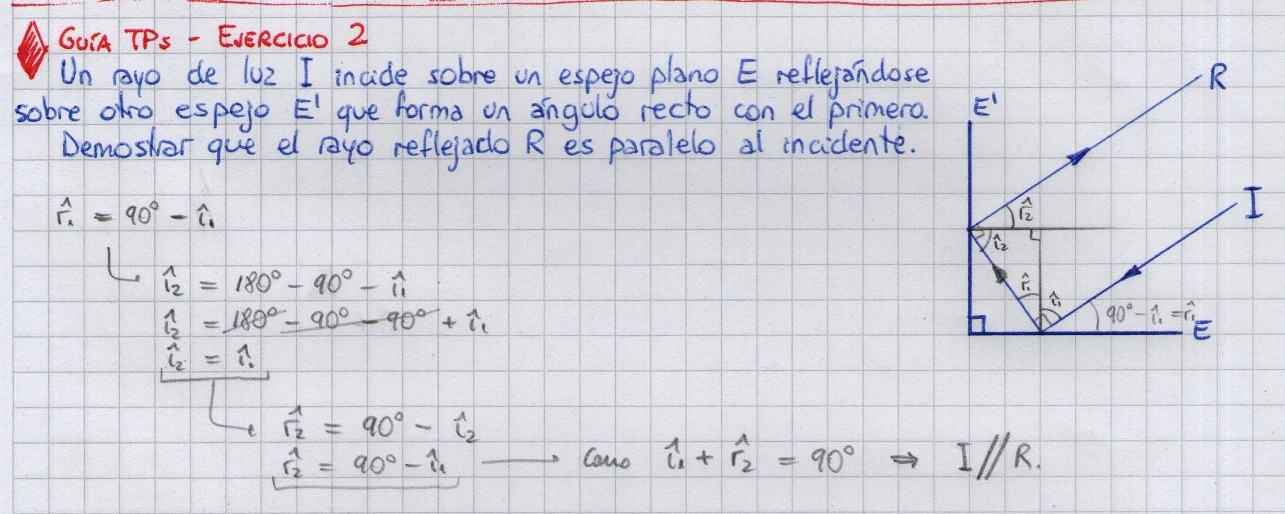 GUÍA TPs - EJERCICIO 2
Un rayo de luz I incide sobre un espejo plano E reflejándose
sobre otro espejo E' que forma un ángulo recto con el primero.
Demostrar que el rayo reflejado R es paralelo al incidente.
r̂₁ = 90° - î₁
î₂ = 180° - 90° - î₁
î₂ = 180° - 90° - 90° + î₁
î₂ = î₁
r̂₂ = 90° - î₂
r̂₂ = 90° - î₁ → Como î₁ + r̂₂ = 90° ⇒ I // R.
R
E'
I
r̂₂
î₂
r̂₁
î₁
90° - î₁ = r̂₁
E